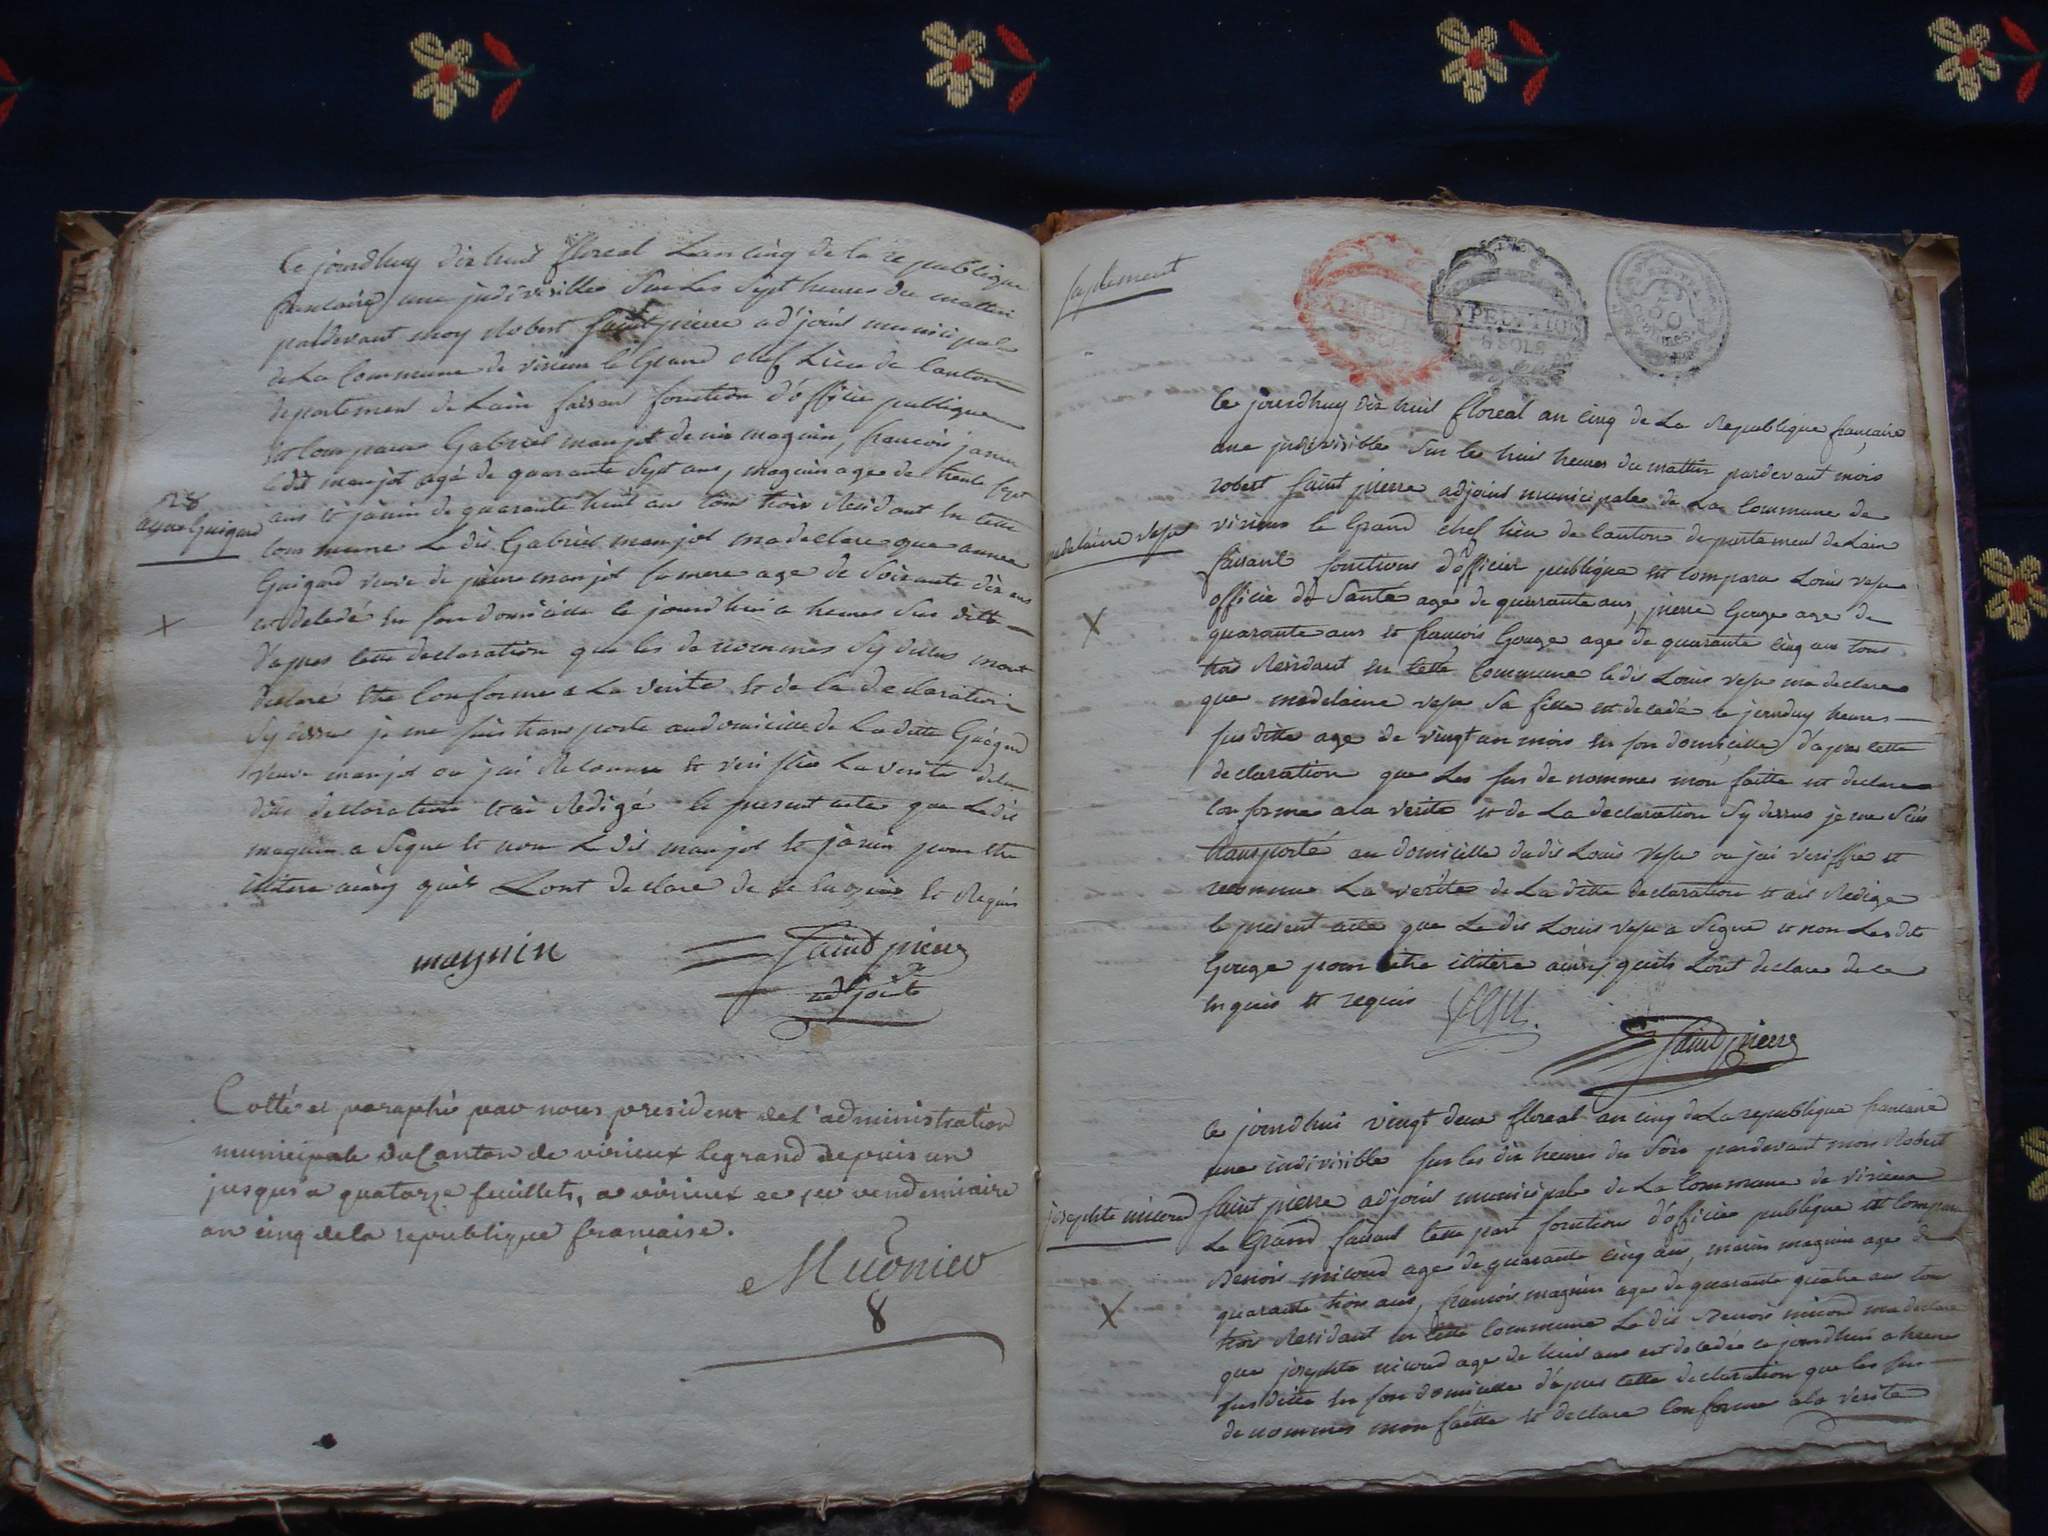 ce jourdhuy dix huit floreal Lan cinq de la republique
francaire une jndivisibles Sur Les Sept heures du mattin
pardevant moy Robert saint pierre adjoint municipal
de La Commune de virieux le Grand chef Lieu de Canton
departement de Lain faisant fonction d'officie publique
est Compara Gabriel manjot denis maguin, francois janin
ledit manjot agé de quarante Sept ans, maguin age de trente sept
ans et janin de quarante huit ans tous trois Residant En Cette
28
anne Guigard
Commune Le dit Gabriel manjot ma declare que annee
Guigard veuve de pierre manjot Sa mere age de Soixante dix ans
est decedé En son domicille ce jourdhui a heures Sus ditte
X
D'apres Cette declaration que les de nommes Sy dessus mont
declaré Etre Conforme a La verite et de la declaration
Sy dessus je me suis transporte au domicille de La ditte Guigard
veuve manjot ou jai Reconnu et veriffiée La verite de la
ditte declaration et ai Redigé le present acte que Le dit
maguin a Signe et non Le dit manjot et janin pour etre
illitere ainsy quils Lont declare de ce Enquis et Requis
magnin Saint pierre
adjoint
Cotté et paraphé par nous president de l'administration
municipale du Canton de virieux legrand depuis un
jusqu'a quatorze feuillets, a virieux ce 1er vendemiaire
an cinq de la republique francaise.
Mugnier
8
suplement
EXPEDITION
8 SOLS
50
CENTIMES
Ce jourdhuy dix huit floreal an cinq de La Republique francaire
une judivisible Sur les huit heures du mattin pardevant mois
robert saint pierre adjoint municipale de La Commune de
madelaine vepu
virieux le Grand chef lieu de Canton departement de Lain
faisant fonctions d'officier publique est Compara Louis vepu
officie de Sante age de quarante ans, pierre Gouge age de
X
quarante ans et francois Gouge age de quarante cinq ans tous
trois Residant en Cette Commune le dit Louis vepu ma declare
que madelaine vepu Sa fille est decedé ce jourduy heures
sus ditte age de vingt un mois en son domicille, d'apres Cette
declaration que Les sus de nommes mon faitte et declare
Conforme a la verite et de La declaration Sy dessus je me Suis
transporté au domicille du dit Louis vepu ou jai veriffie et
reconnue La verite de La ditte declaration et ait Redige
le present acte que Le dit Louis vepu a Signe et non Les dits
Gouge pour etre illitere ainsy quils Lont declare de ce
Enquis et requis vepu
Saint pierre
Ce jourdhui vingt deux floreal an cinq de La republique francaire
une indivisible sur les dix heures du Soir pardevant mois Robert
saint pierre adjoint municipale de La Commune de virieux
josephte micoud
Le Grand faisant Cette part fonctions d'officie publique est Compara
Benoit micoud age de quarante cinq ans, marin maguin age de
quarante trois ans, francois maguin age de quarante quatre ans tous
X
trois Residant En Cette Commune Le dit Benoit micoud ma declare
que josephte micoud age de huit ans est decedée ce jourdhui a heure
sus ditte En son domicille d'apres Cette declaration que les sus
de nommes mon faitte et declare Conforme a la verite